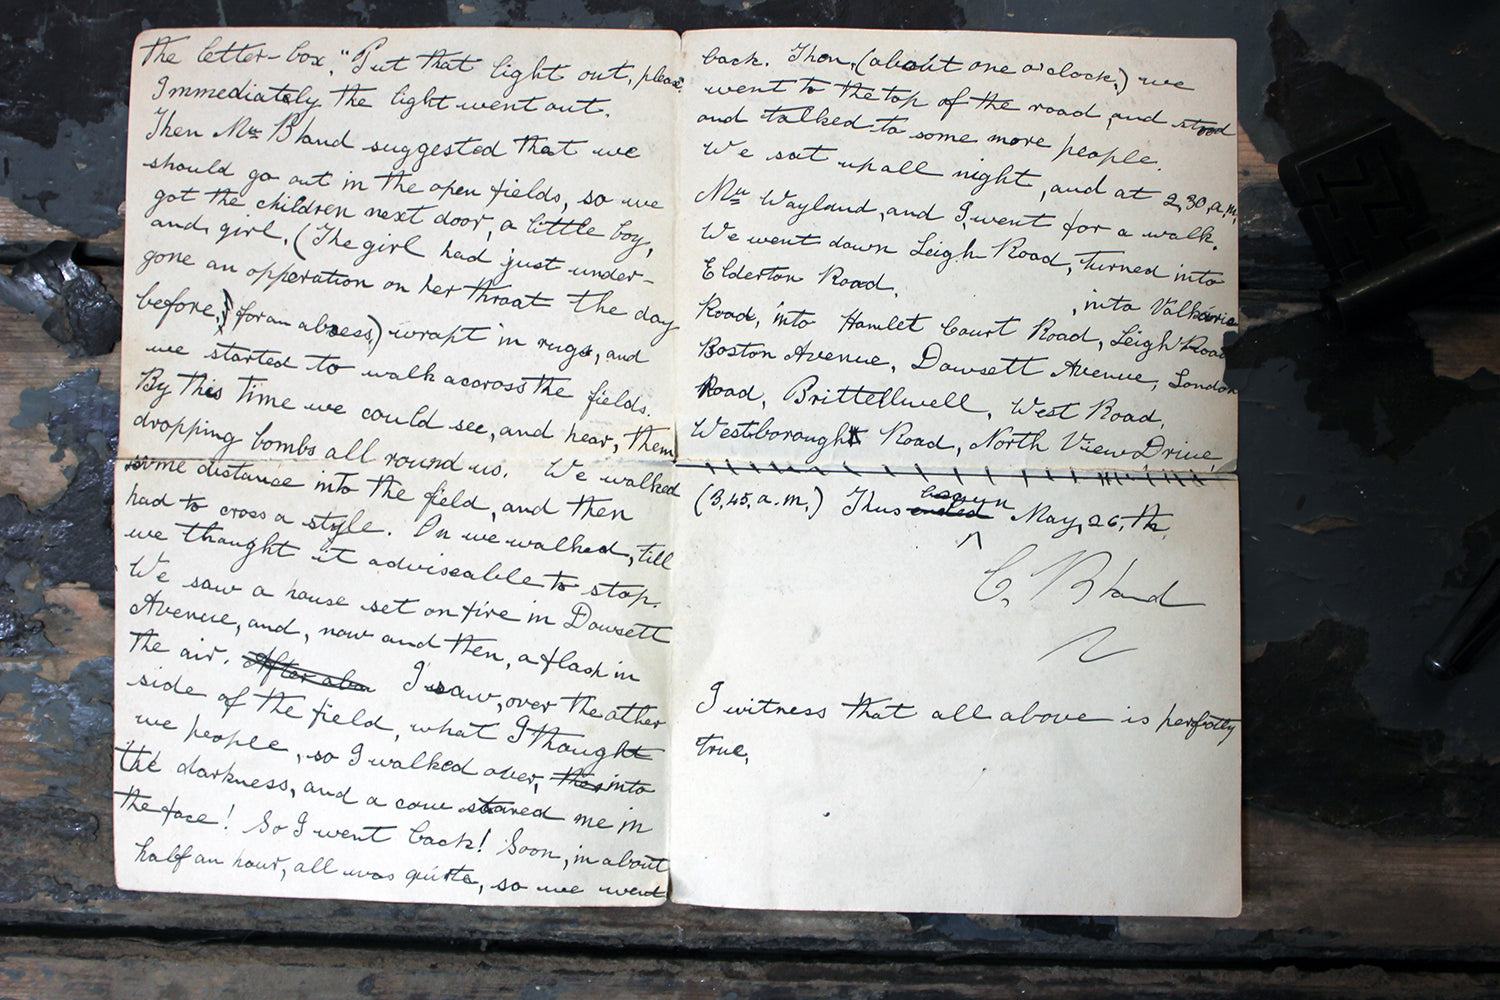 the letter-box, "Put that light out, please."
Immediately the light went out.
Then Mrs Bland suggested that we
should go out in the open fields, so we
got the children next door, a little boy,
and, girl, (The girl had just under-
gone an opperation on her throat the day
before, for an absess,) wrapt in rugs, and
we started to walk accross the fields.
By this time we could see, and hear, them
dropping bombs all round us. We walked
some distance into the field, and then
had to cross a style. On we walked, till
we thaught it adviseable to stop.
We saw a house set on fire in Dowsett
Avenue, and, now and then, a flash in
the air. I saw, over the other
side of the field, what I thought
we people, so I walked over, into
the darkness, and a cow stared me in
the face! So I went back! Soon, in about
half an hour, all was quite, so we went
back. Then, (about one o'clock,) we
went to the top of the road, and stood
and talked to some more people.
We sat up all night, and at 2,30, a,m,
Mrs Wayland, and I, went for a walk.
We went down Leigh Road, turned into
Elderton Road, into Valkarie
Road, into Hamlet Court Road, Leigh Road
Boston Avenue, Dowsett Avenue, London
Road, Brittellwell, West Road,
Westborough Road, North View Drive,
(3,45, a.m.) Thus ended begun May, 26, th,
C. Bland
I witness that all above is perfectly
true,